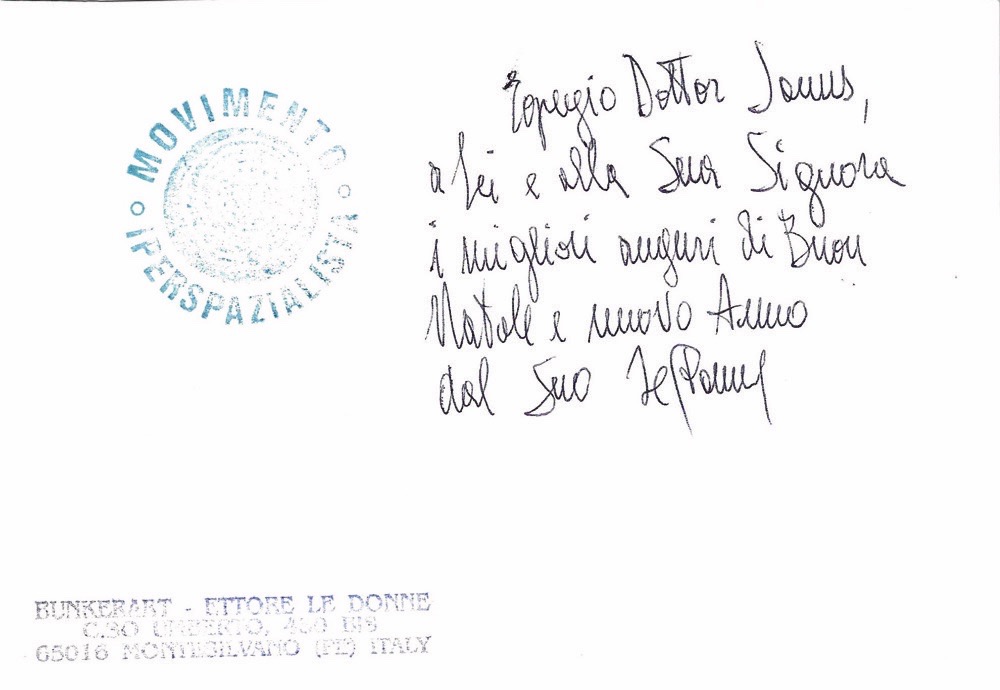 MOVIMENTO
IPERSPAZIALISTA
Egregio Dottor Janus,
a Lei e alla Sua Signora
i migliori auguri di Buon
Natale e nuovo Anno
dal Suo
BUNKERART - ETTORE LE DONNE
C.SO UMBERTO, 460 BIS
65016 MONTESILVANO (PE) ITALY